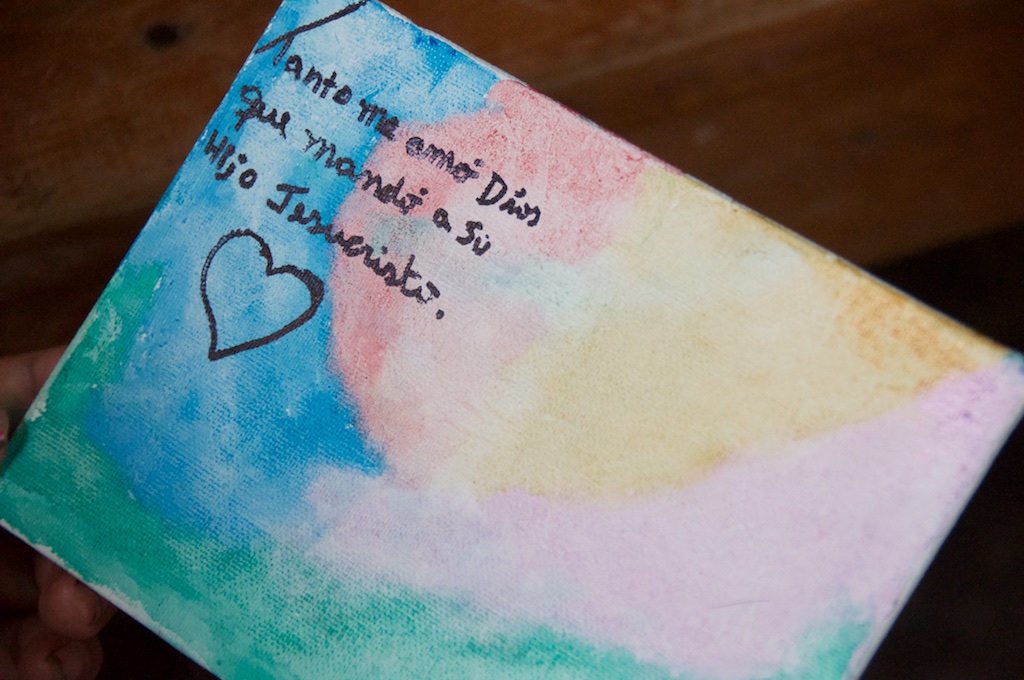 Tanto me amó Dios
que mandó a su
Hijo Jesucristo.